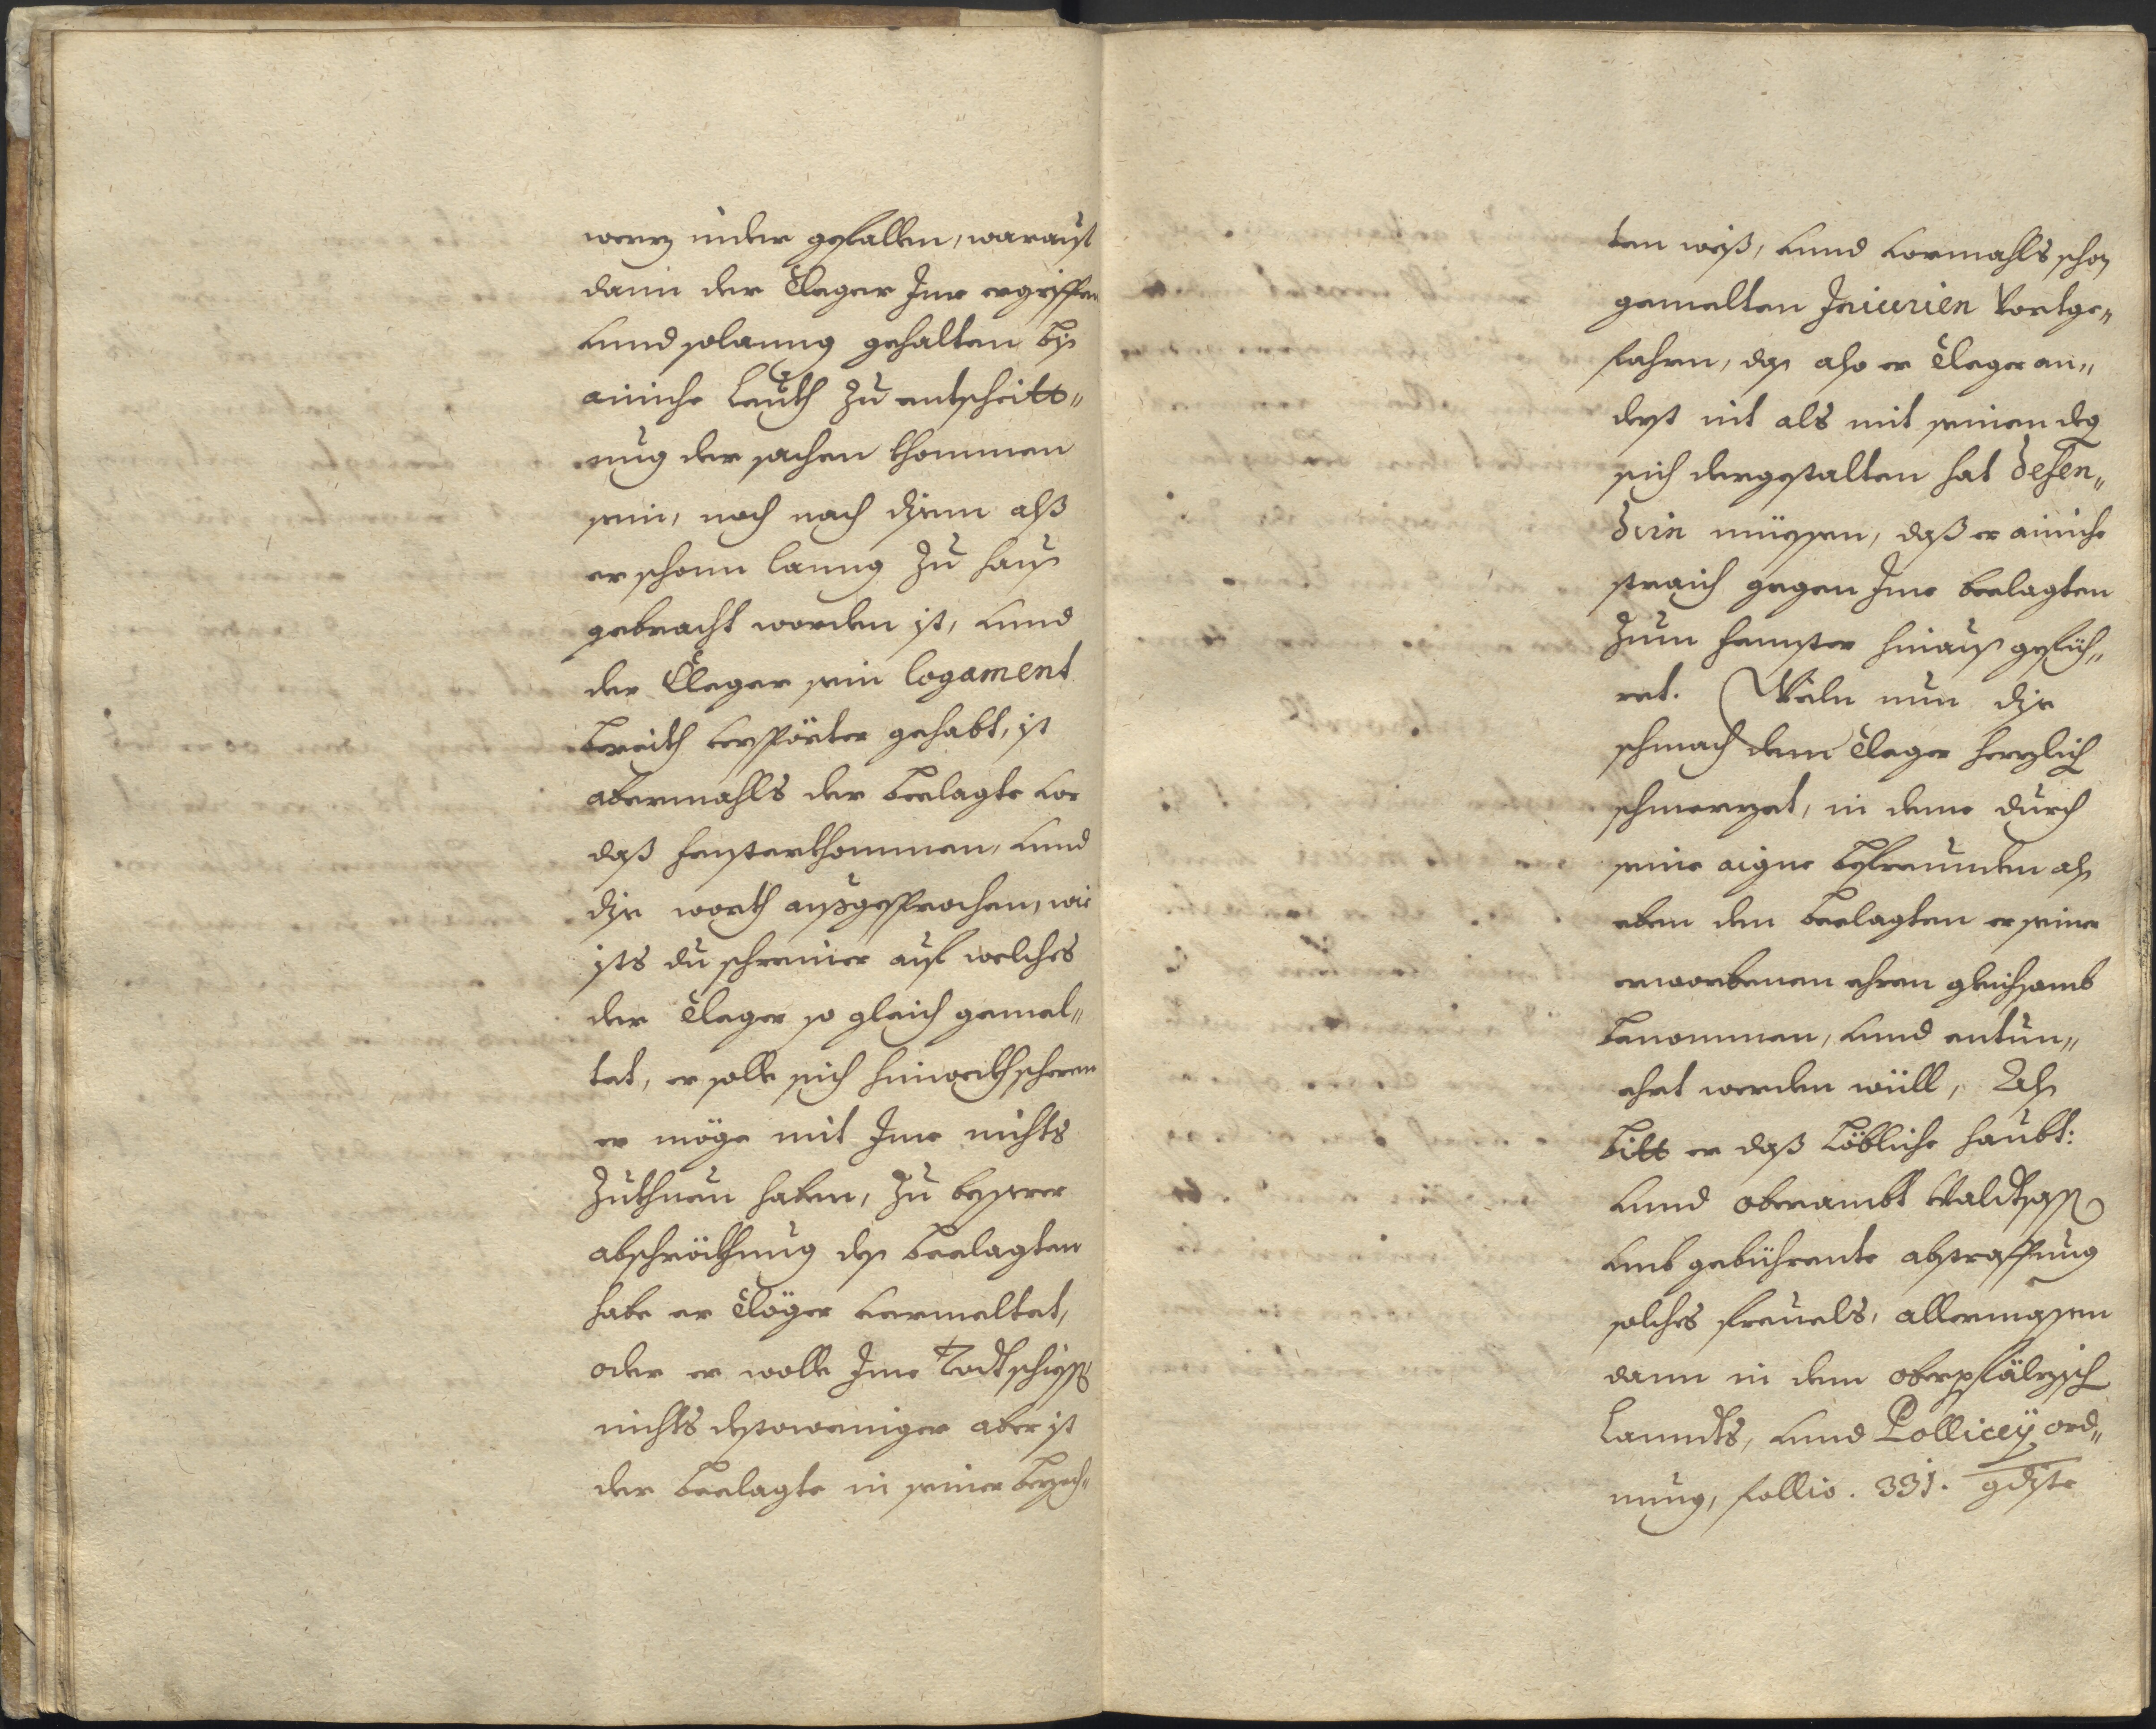 weeg nider gefallen, warauf
dann der Clager Ime ergriffen
vnnd solanng gehalten bis
ainiche Leuth zu entscheitt„
ung der sachen khommen
sein, noch nach disem alß
er schonn lanng zu haus
gebracht worden ist, vnnd
der Clager sein logament
bereith verspörter gehabt, ist
abermahls der beclagte vor
daß fenster khommen, vnnd
dise worth außgesprochen, wie
ists du schreiner auf welches
der Clager so gleich gemel„
tet, er solle sich hinwekh scheren
er möge mit Ime nichts
zuthuen haben, zu besserer
abschröckhung des beclagten
habe er Clöger vermeltet,
oder er wolle Ime Todtschiessen
nichts destoweniger aber ist
der beclagte in seiner bezech„
ten weiß, vnnd vormahls schon
gemelten Iniurien Vortge„
fahren, das also er Clager an„
derst nit als mit seinen deg
sich dergestalten hat defen„
dirn müessen, daß er ainiche
straich gegen Ime beclagten
zum fennster hinaus gefüh„
ret. Weiln nun dise
schmach dem Clager herzlich
schmerzet, in deme durch
seine aigne befreunden als
eben den beclagten er seiner
erworbenen ehren gleichsamb
benommen, vnnd entun„
ehrt werden wüll, Als
bitt er daß Löbliche haubt:
vnnd oberambt Waldtsassen
vmb gebührente abstraffung
solches freuels, allermassen
dann in dem oberpfälzisch
Lanndts, vnnd Pollicey ord„
nung, follio. 331. gdiste